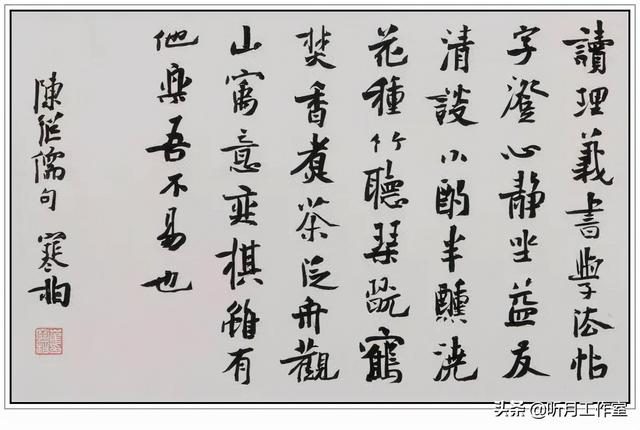 讀理義書學法帖
字澄心靜坐益友
清談小酌半醺澆
花種竹聽琴翫鶴
焚香煮茶泛舟觀
山寓意奕棋雖有
他樂吾不易也
陳繼儒句 寒
头条 @听月工作室